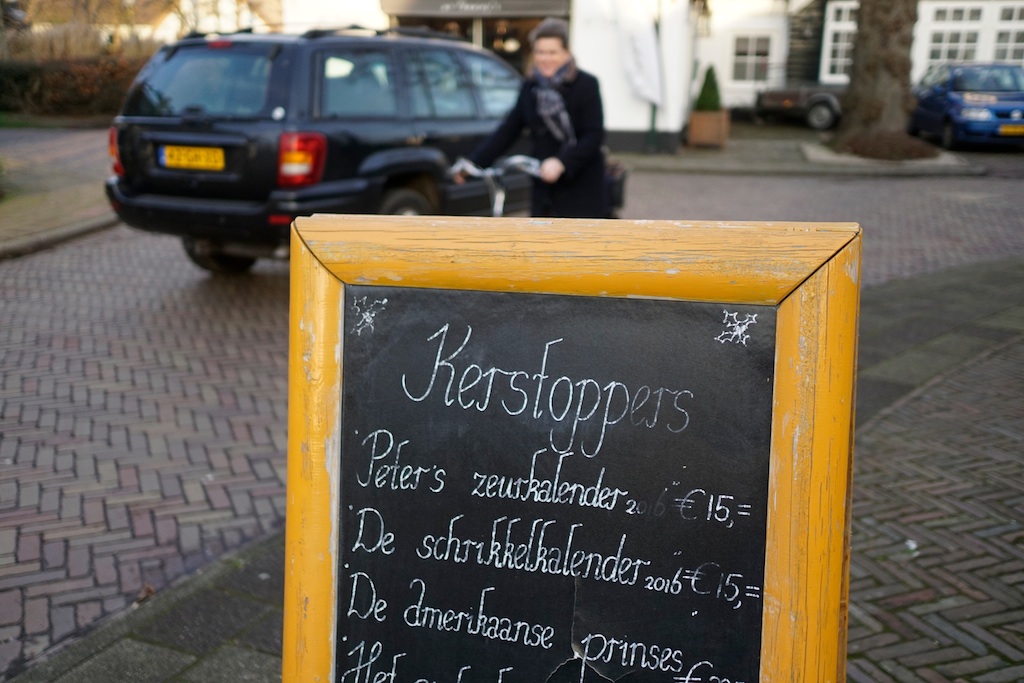 Kerstoppers
Peter's zeurkalender 2016 € 15,=
De schrikkelkalender 2016 € 15,=
De Amerikaanse prinses €
Het